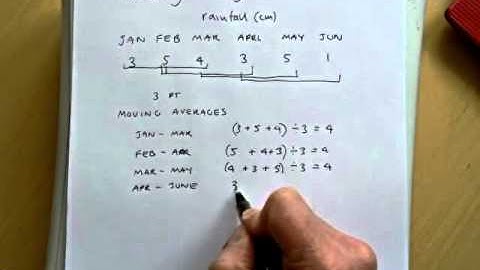 rainfall (cm)
JAN FEB MAR APRL MAY JUN
3 5 4 3 5 1
3 PT
MOVING AVERAGES
JAN - MAR (3 + 5 + 4) ÷ 3 = 4
FEB - APR (5 + 4 + 3) ÷ 3 = 4
MAR - MAY (4 + 3 + 5) ÷ 3 = 4
APR - JUNE 3